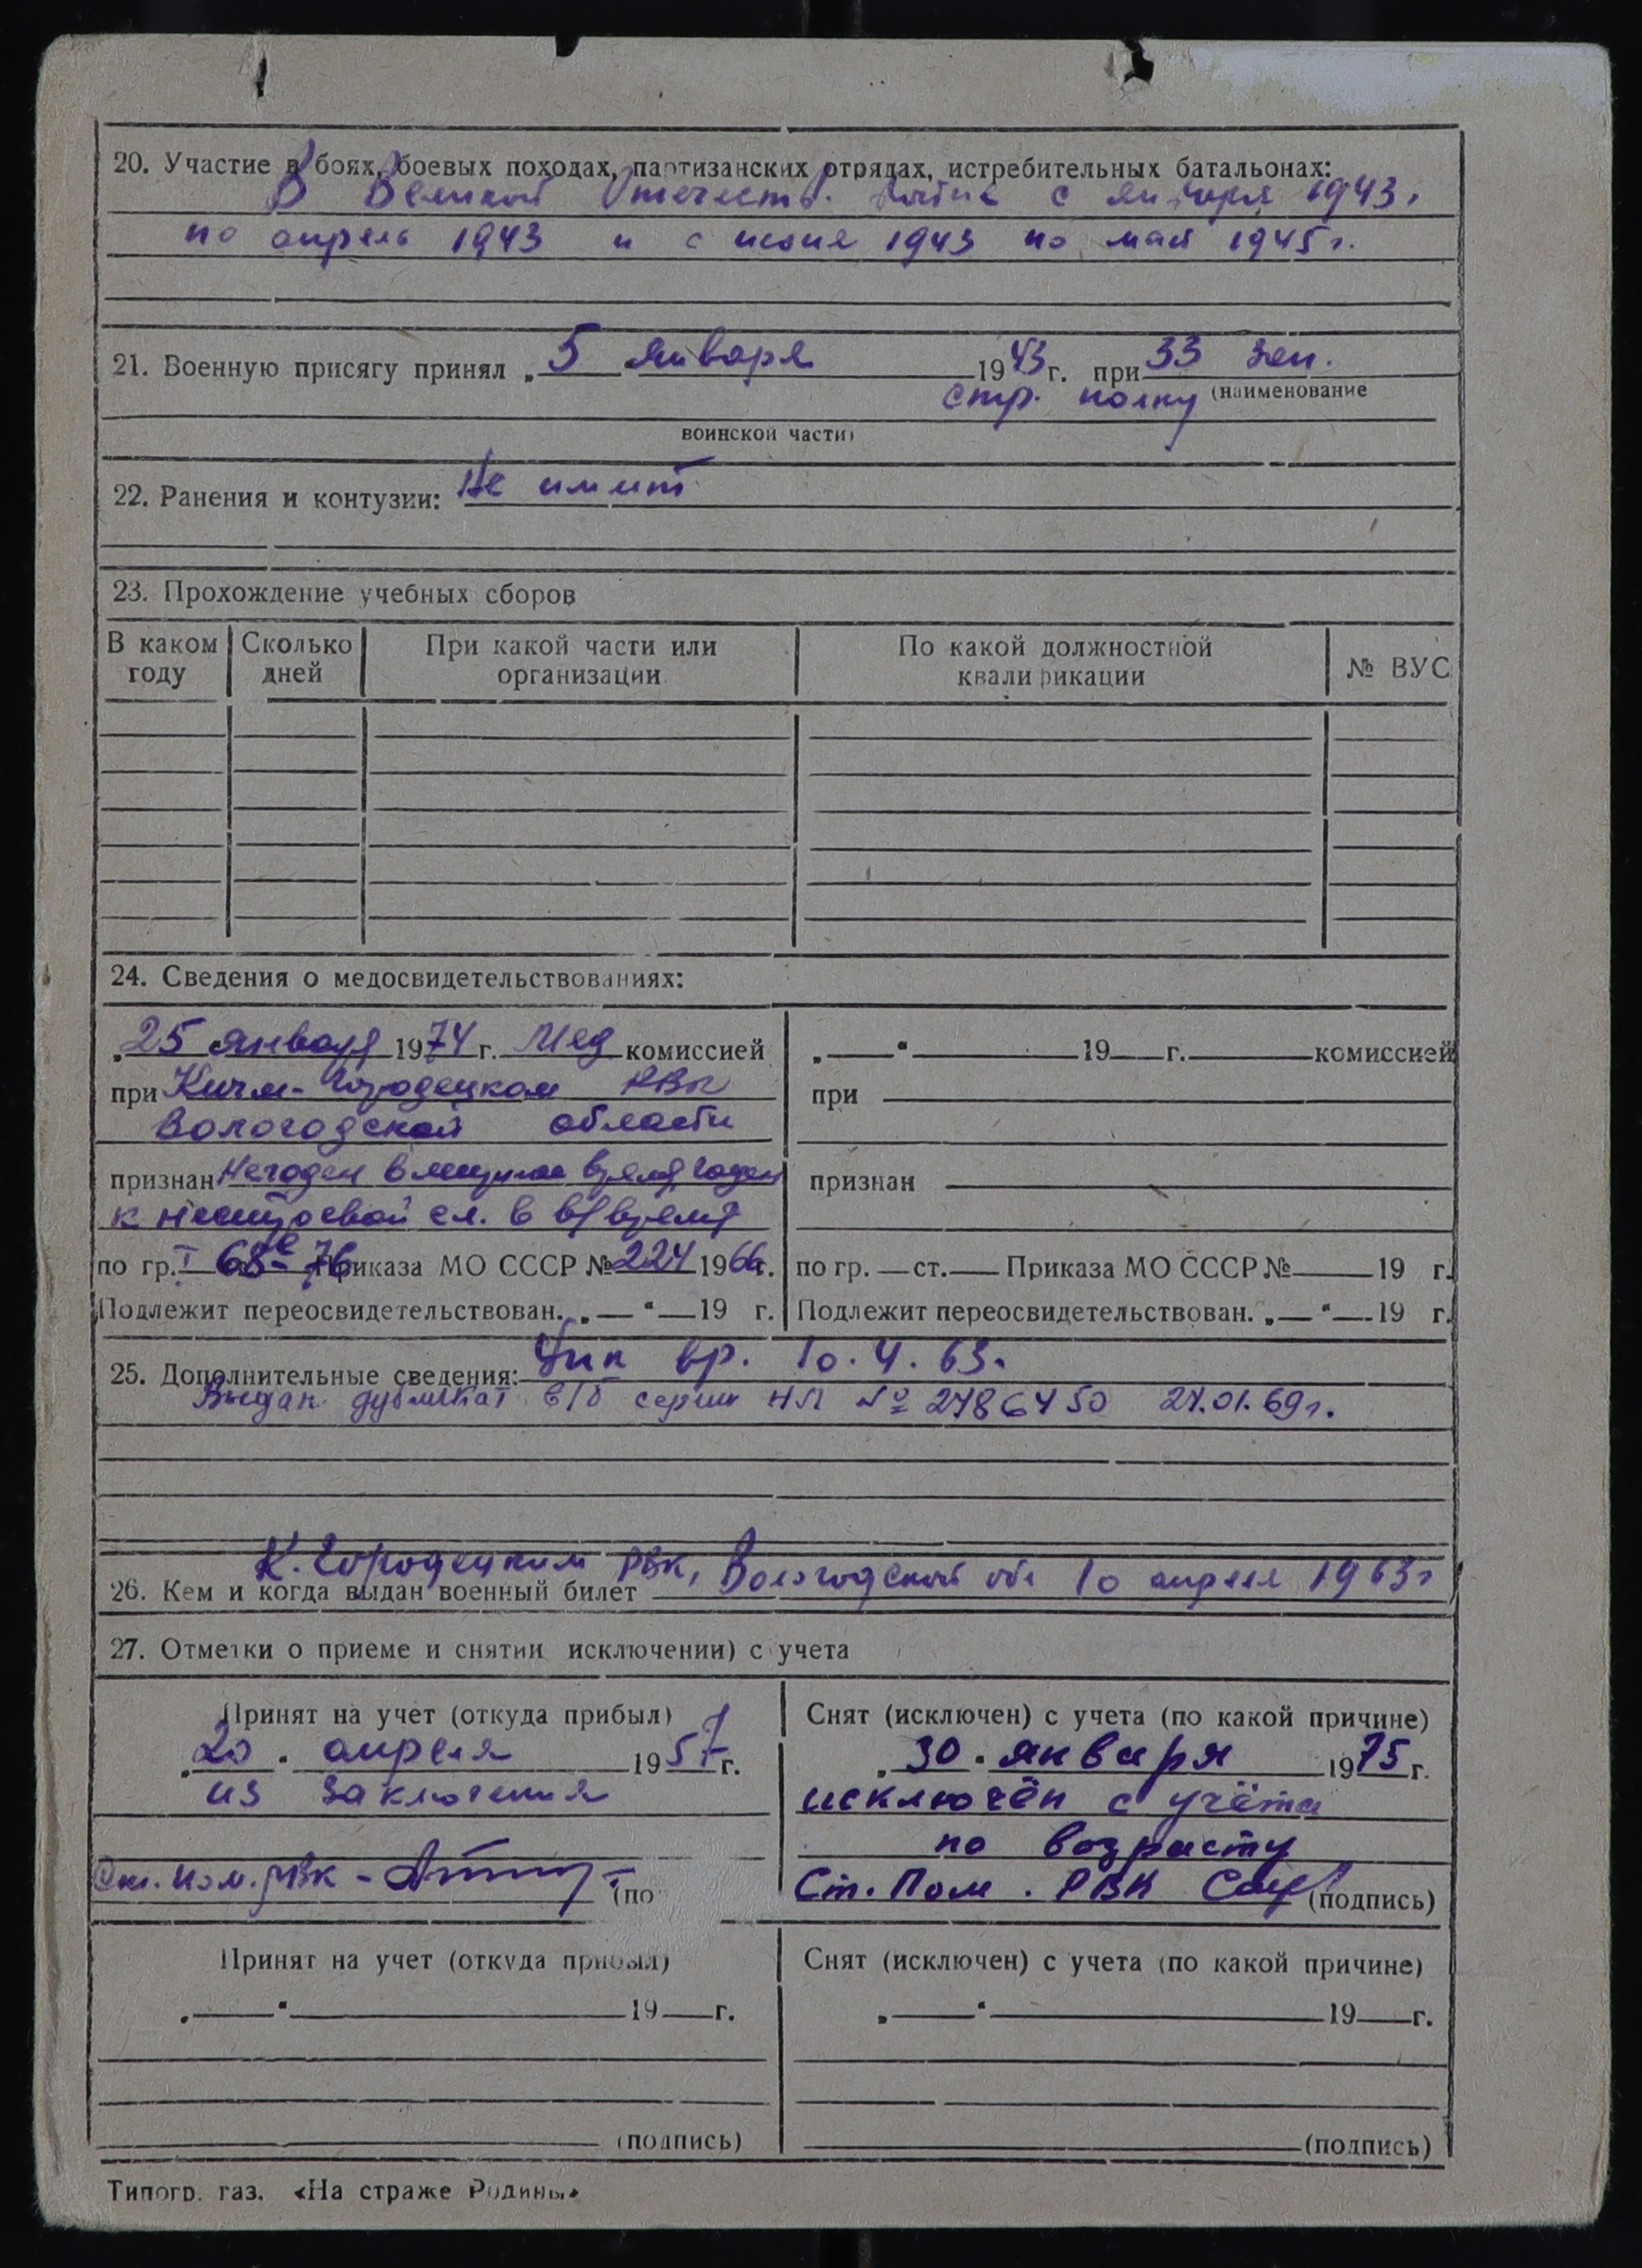 20. Участие в боях, боевых походах, партизанских отрядах, истребительных батальонах:
В Великой Отечеств. войне с января 1943.
по апрель 1943 и с июня 1943 по май 1945 г.
21. Военную присягу принял „5 января 1943 г. при 33 зен.
стр. полку (наименование
воинской части)
22. Ранения и контузии: Не имеет
23. Прохождение учебных сборов
В каком году
Сколько дней
При какой части или организации
По какой должностной квалификации
№ ВУС
24. Сведения о медосвидетельствованиях:
„25 января 1974 г. Мед комиссией
при Кичм-Городецком РВК
Вологодской области
признан Негоден в мирное время, годен
к нестроевой сл. в в/время
по гр. I 68 76 Приказа МО СССР № 224 1966 г.
Подлежит переосвидетельствован. „—“—19 г.
„—“ 19 г. комиссией
при
признан
по гр. — ст. — Приказа МО СССР № — 19 г.
Подлежит переосвидетельствован. „—“—19 г.
25. Дополнительные сведения: вр. 10.4.63.
Выдан дубликат в/б серии НЛ № 2786450 27.01.69 г.
К. Городецким РВК, Вологодской обл 10 апреля 1963 г
26. Кем и когда выдан военный билет
27. Отметки о приеме и снятии исключении) с учета
Принят на учет (откуда прибыл)
„20. апреля 1957 г.
из заключения
Ст. пом. РВК -
(по
Снят (исключен) с учета (по какой причине)
„30. января 1975 г.
исключён с учёта
по возрасту
Ст. Пом. РВК (подпись)
Принят на учет (откуда прибыл)
„—“ 19—г.
(подпись)
Снят (исключен) с учета (по какой причине)
„—“ 19—г.
(подпись)
Типогр. газ. «На страже Родины»